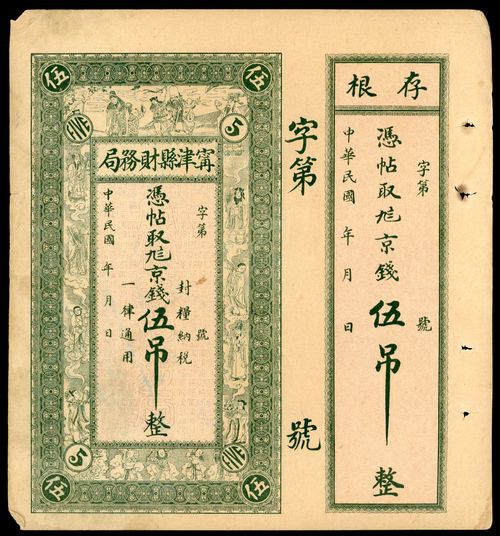 存根
字第 號
憑帖取 京錢伍吊整
中華民國 年 月 日
字第 號
伍
伍
FIVE
5
甯津縣財務局
字第 號
封糧納税
憑帖取 京錢伍吊整
一律通用
中華民國 年 月 日
5
FIVE
伍
伍